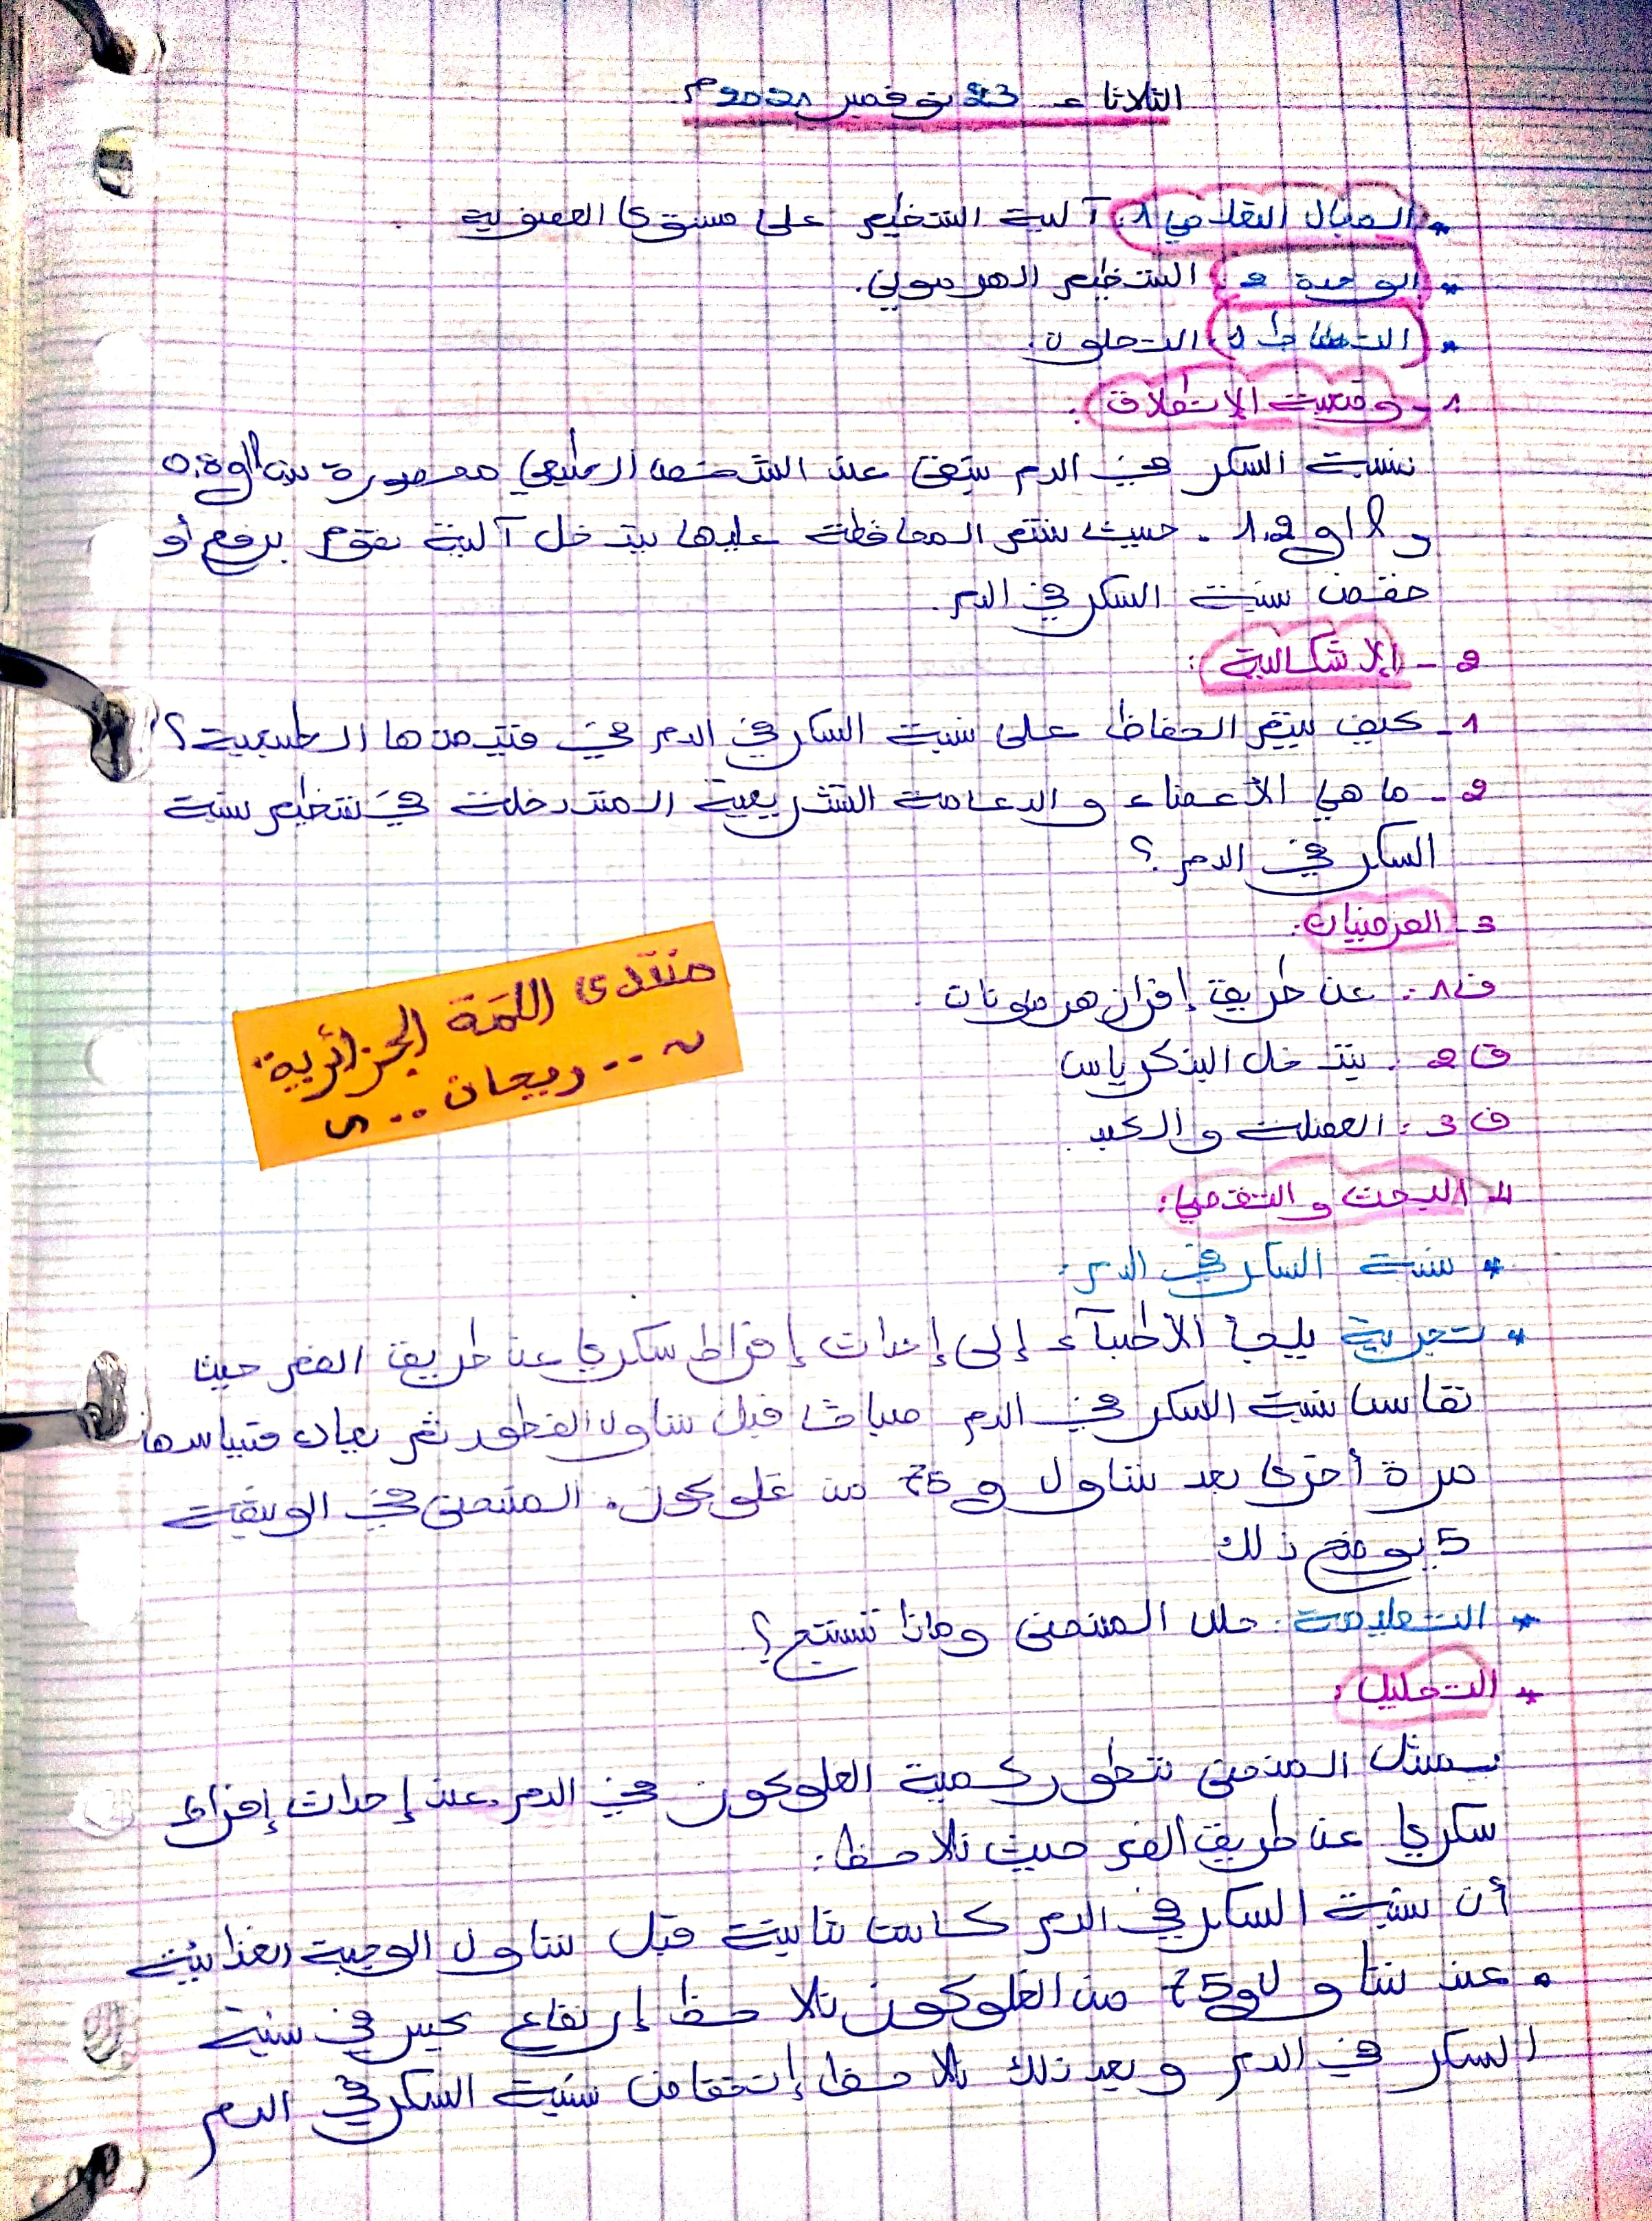 الثلاثاء 23 نوفمبر 2021م
* المجال التعلمي 1: آلية التنظيم على مستوى العضوية.
* الوحدة 2: التنظيم الهرموني.
* النشاط 1: التحلون.
1- وضعية الإنطلاق:
نسبة السكر في الدم تبقى عند الشخص الطبيعي محصورة بين 0.8g/l
و 1.2g/l. حيث يتم المحافظة عليها بتدخل آلية تقوم برفع أو
خفض نسبة السكر في الدم.
2- الإشكالية:
1- كيف يتم الحفاظ على نسبة السكر في الدم في قيمها الطبيعية؟
2- ما هي الأعضاء و الدعامة التشريعية المتدخلة في تنظيم نسبة
السكر في الدم؟
3- الفرضيات:
ف1: عن طريق إفراز هرمونات.
ف2: يتدخل البنكرياس
ف3: العضلات و الكبد.
منتدى اللمة الجزائرية
.. ريحان ..
4- البحث و التقصي:
* نسبة السكر في الدم:
* تجربة يلجأ الأطباء إلى إحداث إفراط سكري عن طريق الفم حيث
تقاس نسبة السكر في الدم صباحا قبل تناول الفطور ثم يعاد قياسها
مرة أخرى بعد تناول 75g من غلوكوز. المنحنى في الوثيقة
5 يوضح ذلك
* التعليمة: حلل المنحنى وماذا تستنتج؟
* التحليل:
يمثل المنحنى تطور كمية الغلوكوز في الدم عند إحداث إفراط
سكري عن طريق الفم حيث نلاحظ:
أن نسبة السكر في الدم كانت ثابتة قبل تناول الوجبة الغذائية
• عند تناول 75g من الغلوكوز نلاحظ إرتفاع كبير في نسبة
السكر في الدم و بعد ذلك نلاحظ إنخفاض نسبة السكر في الدم